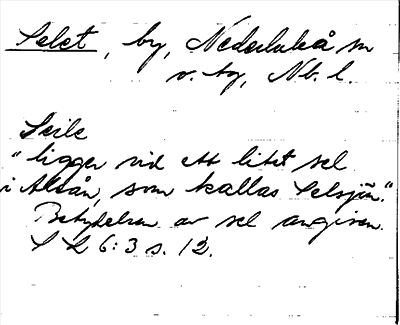 Selet, by, Nederluleå sn
v. by, Nb. l.
Seile
"ligger vid ett litet sel
i Alån, som kallas Selsjön."
Betydelsen av sel angiven.
S L 6:3 s. 12.